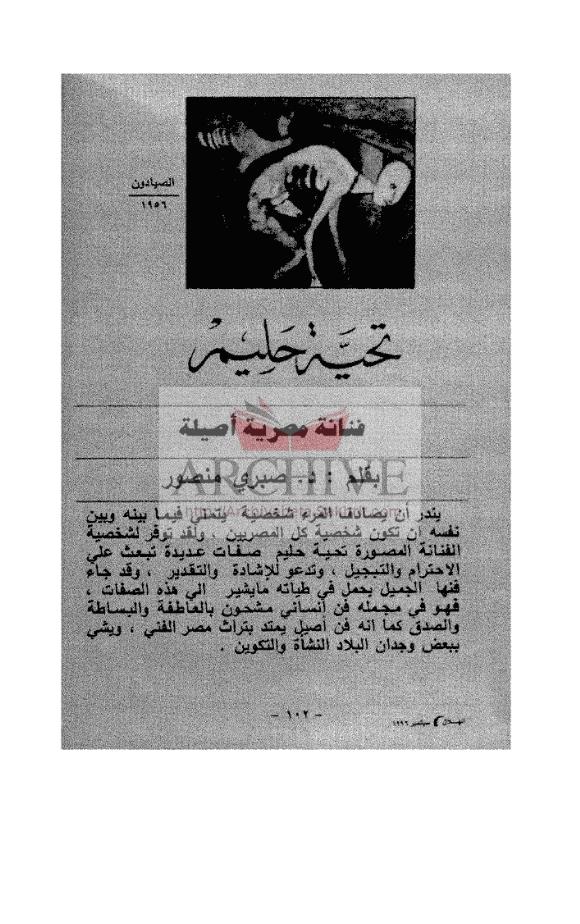 الصيادون
١٩٥٦
تحيَّة حَليمْ
فنانة مصرية أصيلة
بقلم : د. صبري منصور
ARCHIVE
يندر أن يصادف المرء شخصية يتمنى فيما بينه وبين
نفسه أن تكون شخصية كل المصريين ، ولقد توفر لشخصية
الفنانة المصورة تحية حليم صفات عديدة تبعث علي
الاحترام والتبجيل ، وتدعو للإشادة والتقدير ، وقد جاء
فنها الجميل يحمل في طياته مايشير الي هذه الصفات ،
فهو في مجمله فن إنساني مشحون بالعاطفة والبساطة
والصدق كما انه فن أصيل يمتد بتراث مصر الفني ، ويشي
ببعض وجدان البلاد النشأة والتكوين .
- ١٠٢ -
الهلال سبتمبر ١٩٩٦